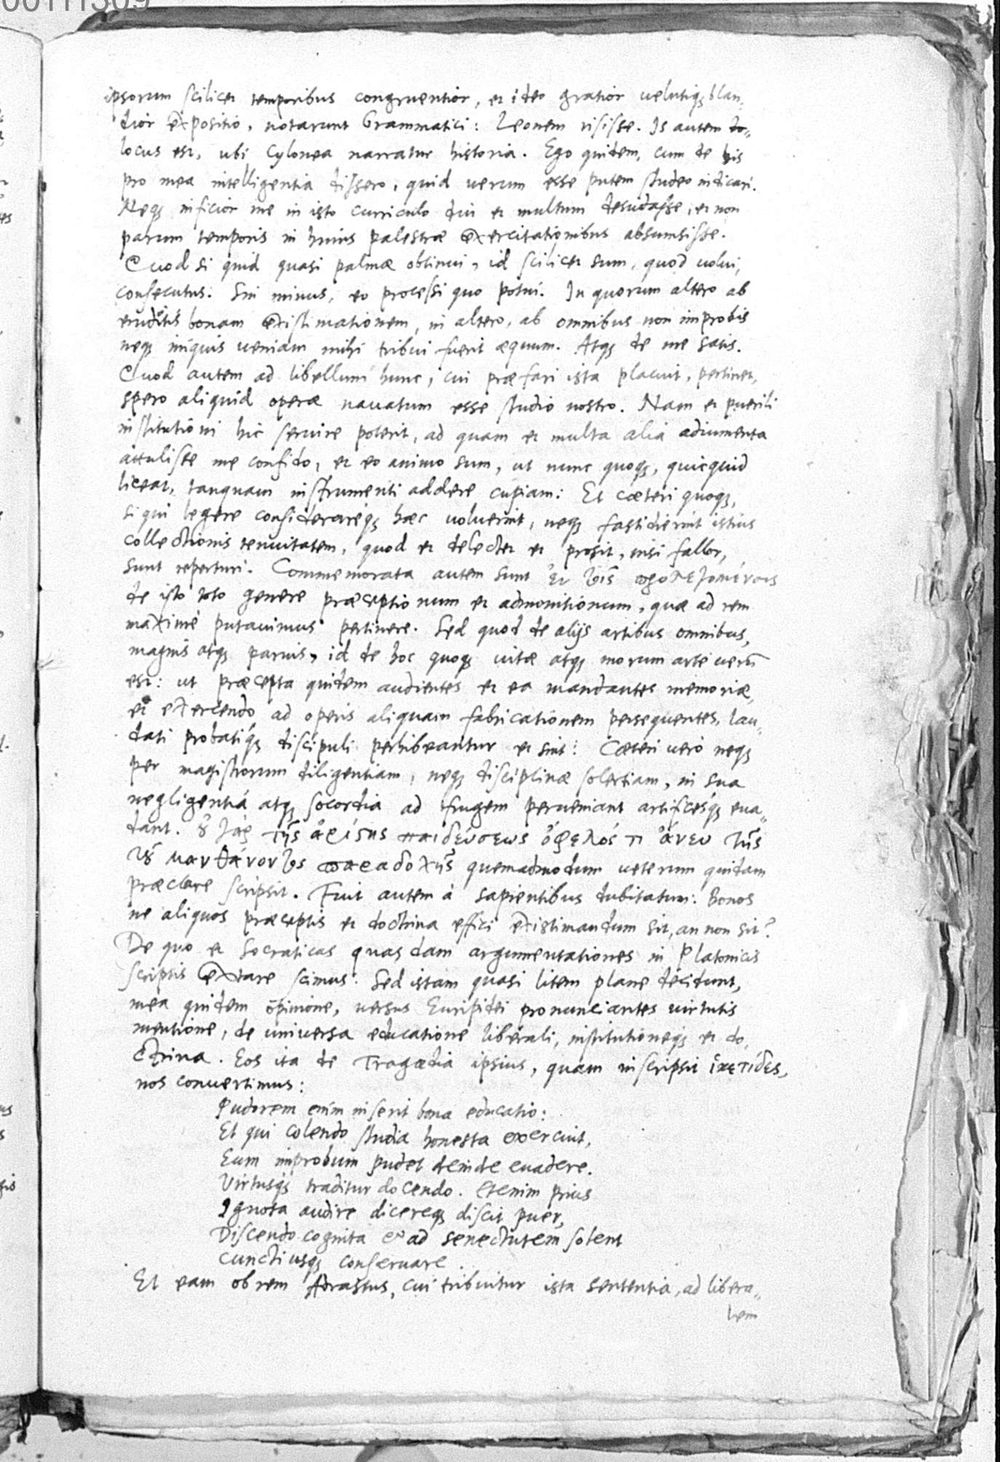 00111309
ipsorum scilicet temporibus congruentior, et ideo gratior uelutiq; blan-
dior expositio, notarunt Grammatici: Leonem risisse. Is autem
locus est, ubi Cylonea narratur historia. Ego quidem, cum de his
pro mea intelligentia dissero, quid uerum esse putem studeo indicari.
Neq; inficior me in isto curriculo diu et multum desudasse, et non
parum temporis in huius palestræ exercitationibus absumsisse.
Quod si quid quasi palmæ obtinui, id scilicet sum, quod uolui,
consecutus: Sin minus, eo processi quo potui. In quorum altero ab
eruditis bonam existimationem, in altero, ab omnibus non improbis
neq; iniquis ueniam mihi tribui fuerit æquum. Atq; de me satis.
Quod autem ad libellum hunc, cui præfari ista placuit, pertinet,
spero aliquid operæ nauatum esse studio nostro. Nam et puerili
institutioni hic seruire poterit, ad quam et multa alia adiumenta
attulisse me confido, et eo animo sum, ut nunc quoq;, quicquid
liceat, tanquam instrumenti addere cupiam: Et cæteri quoq;,
si qui legere considerareq; hæc uoluerint, neq; fastidierint istius
collectionis tenuitatem, quod et delectet et prosit, nisi fallor,
sunt reperturi. Commemorata autem sunt ἐν τοῖς προλεγομένοις
de isto toto genere præceptionum et admonitionum, quæ ad rem
maximè putauimus pertinere. Sed quod de alijs artibus omnibus,
magnis atq; paruis, id de hoc quoq; uitæ atq; morum arte uerū
est: ut præcepta quidem audientes et ea mandantes memoriæ,
et exercendo ad operis aliquam fabricationem persequentes, lau-
dati probatiq; discipuli perhibeantur et sint: Cæteri uero neq;
per magistrorum diligentiam, neq; disciplinæ solertiam, in sua
negligentiá atq; socordia ad frugem perueniant artificesq; eua-
dant. οὐ γὰρ τῆς ἀρίστης παιδεύσεως ὄφελός τι ἄνευ τῆς
τοῦ μανθάνοντος παραδοχῆς quemadmodum ueterum quidam
præclare scripsit. Fuit autem à sapientibus dubitatum: Bonos
ne aliquos præceptis et doctrina effici existimandum sit, an non sit?
De quo et Socraticas quasdam argumentationes in Platonicis
scriptis extare scimus. Sed istam quasi litem plane decidunt,
mea quidem opinione, versus Euripidei pronunciantes virtutis
mentione, de uniuersa educatione liberali, institutioneq; et do-
ctrina. Eos ita de Tragœdia ipsius, quam inscripsit ἱκετίδες,
nos convertimus:
Pudorem enim inserit bona educatio:
Et qui colendo studia honesta exercuit,
Eum improbum pudet deinde euadere.
Virtusq́; traditur docendo. Etenim prius
Ignota audire dicereq; discit puer,
Discendo cognita et ad senectutem solent
Cuncti usq; conseruare.
Et eam ob rem Adrastus, cui tribuitur ista sententia, ad libera-
lem